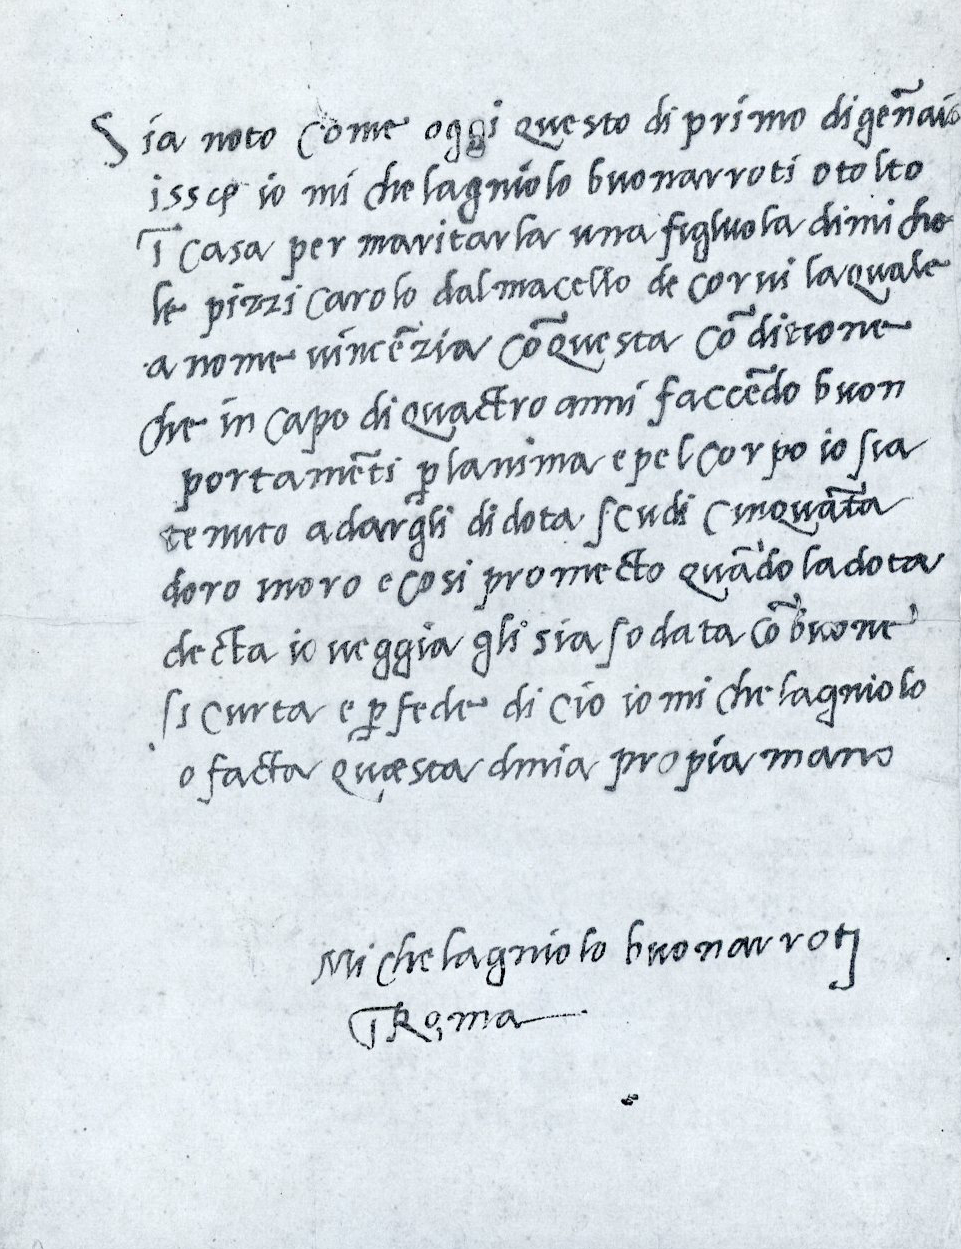 Sia noto come oggi questo di primo di gēnaio
io michelagniolo buonarroti o tolto
ī casa per maritarla una figluola di miche
le pizzicarolo dal macello de corui la quale
a nome uincēzia cō questa cō ditione
che in capo di quactro anni faccēdo buon
portamēti ꝑ lanima e pel corpo io sia
tenuto a dargli di dota scudi cinquāta
doro inoro e cosi promecto quādo la dota
decta io ueggia gli sia sodata cō buone
sicurta e ꝑ fede di cio io michelagniolo
o facta questa dmia propia mano
Michelagniolo buonarroti
ī Roma